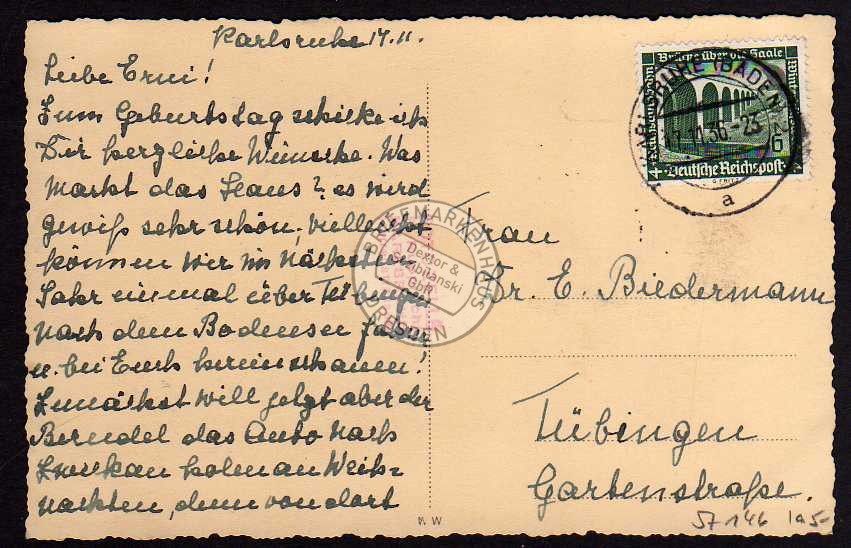 Karlsruhe 17.11.
Liebe Erni!
Zum Geburtstag schicke ich
Dir herzliche Wünsche. Was
macht das Haus? es wird
gewiß sehr schön, vielleicht
können wir im nächsten
Jahr einmal über Tübingen
nach dem Bodensee fahren
u. bei Euch hereinschauen!
Zunächst will jetzt aber der
das Auto nach
holen an Weih=
nachten, denn von dort
Frau
Dr. E. Biedermann
Tübingen
Gartenstraße.
KARLSRUHE (BADEN) 2
17.11.36.-23
a
Reichsautobahn
Brücke über die Saale
4+
6
Deutsche Reichspost
BRIEFMARKENHAUS
Dextor &
Bibilanski
GbR
DRESDEN
M W
57146 1a5-